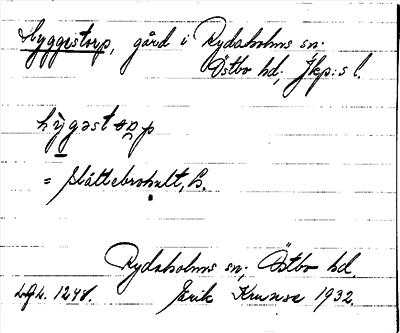 Hyggestorp, gård i Rydaholms sn;
Östbo hd; Jkp:s l.
hy̌gəstɔrp
= Slättebrohult, B.
Rydaholms sn; Östbo hd.
Erik Krunse 1932.